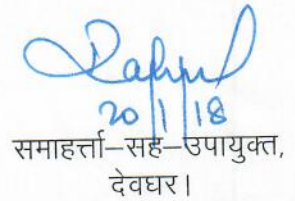 20/1/18
समाहर्त्ता–सह–उपायुक्त,
देवघर।